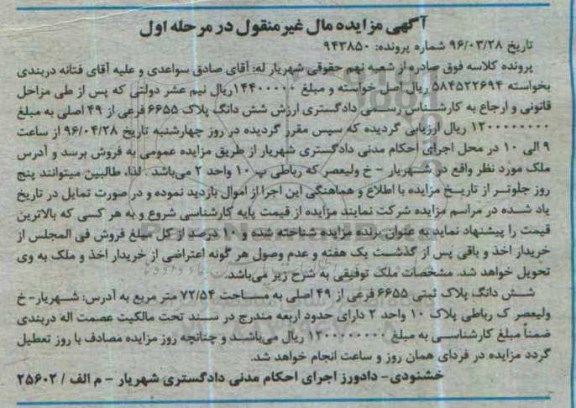 آگهی مزایده مال غیرمنقول در مرحله اول
تاریخ ۹۶/۰۳/۲۸ شماره پرونده: ۹۴۳۸۵۰
پرونده کلاسه فوق صادره از شعبه نهم حقوقی شهریار له: آقای صادق سواعدی و علیه آقای فتانه دربندی
بخواسته ۵۸۴۵۲۲۶۹۴ ریال اصل خواسته و مبلغ ۱۴۴۰۰۰۰۰ ریال نیم عشر دولتی که پس از طی مراحل
قانونی و ارجاع به کارشناس رسمی دادگستری ارزش شش دانگ پلاک ۶۶۵۵ فرعی از ۴۹ اصلی به مبلغ
۱۲۰۰۰۰۰۰۰۰ ریال ارزیابی گردیده که سپس مقرر گردیده در روز چهارشنبه تاریخ ۹۶/۰۴/۲۸ از ساعت
۹ الی ۱۰ در محل اجرای احکام مدنی دادگستری شهریار از طریق مزایده عمومی به فروش برسد و آدرس
ملک مورد نظر واقع در شهریار - خ ولیعصر که رباطی پ ۱۰ واحد ۲ می‌باشد. لذا، طالبین میتوانند پنج
روز جلوتر از تاریخ مزایده با اطلاع و هماهنگی این اجرا از اموال بازدید نموده و در صورت تمایل در تاریخ
یاد شده در مراسم مزایده شرکت نمایند مزایده از قیمت پایه کارشناسی شروع و به هر کسی که بالاترین
قیمت را پیشنهاد نماید به عنوان برنده مزایده شناخته شده و ۱۰ درصد از کل مبلغ فروش فی المجلس از
خریدار اخذ و باقی پس از گذشت یک هفته و عدم وصول هر گونه اعتراضی از خریدار اخذ و ملک به وی
تحویل خواهد شد. مشخصات ملک توقیفی به شرح زیر می‌باشد.
شش دانگ پلاک ثبتی ۶۶۵۵ فرعی از ۴۹ اصلی به مساحت ۷۲/۵۴ متر مربع به آدرس: شهریار- خ
ولیعصر ک رباطی پلاک ۱۰ واحد ۲ دارای حدود اربعه مندرج در سند تحت مالکیت عصمت اله دربندی
ضمناً مبلغ کارشناسی به مبلغ ۱۲۰۰۰۰۰۰۰۰ ریال می‌باشد و چنانچه روز مزایده مصادف با روز تعطیل
گردد مزایده در فردای همان روز و ساعت انجام خواهد شد.
خشنودی- دادورز اجرای احکام مدنی دادگستری شهریار - م الف / ۲۵۶۰۲